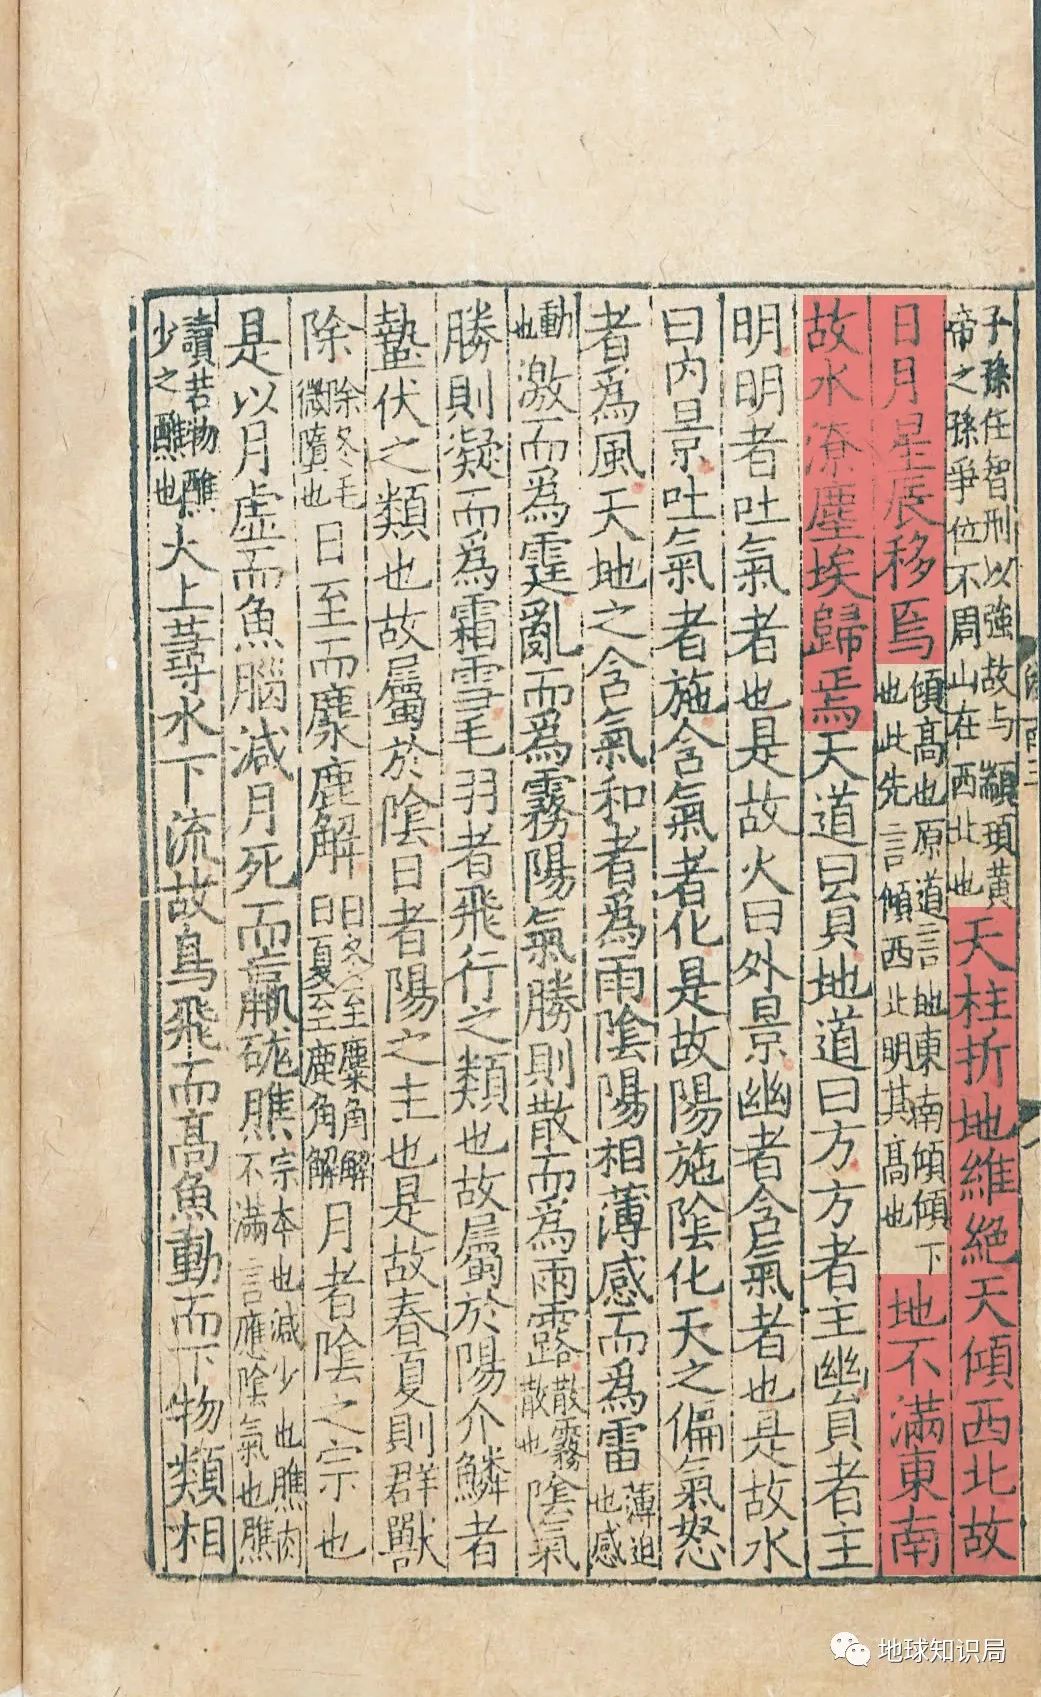 子孫任智刑以強故与顓頊黃
帝之孫爭位不周山在西北也
天柱折地維絕天傾西北故
日月星辰移焉
傾高也原道言地東南傾傾下
也此先言傾西北明其高也
地不滿東南
故水潦塵埃歸焉天道曰員地道曰方方者主幽員者主
明明者吐氣者也是故火曰外景幽者含氣者也是故水
曰內景吐氣者施含氣者化是故陽施陰化天之偏氣怒
者為風天地之含氣和者為雨陰陽相薄感而為雷
薄迫
也感
動
也
激而為霆亂而為霧陽氣勝則散而為雨露
散霧
散也
陰氣
勝則凝而為霜雪毛羽者飛行之類也故屬於陽介鱗者
蟄伏之類也故屬於陰日者陽之主也是故春夏則群獸
除
除冬毛
微墮也
日至而麋鹿解
日冬至麋角解
日夏至鹿角解
月者陰之宗也
是以月虛而魚腦減月死而蠃硥膲
宗本也減少也膲肉
不滿言應陰氣也膲
讀若物醮
少之醮也
火上蕁水下流故鳥飛而高魚動而下物類相
地球知识局